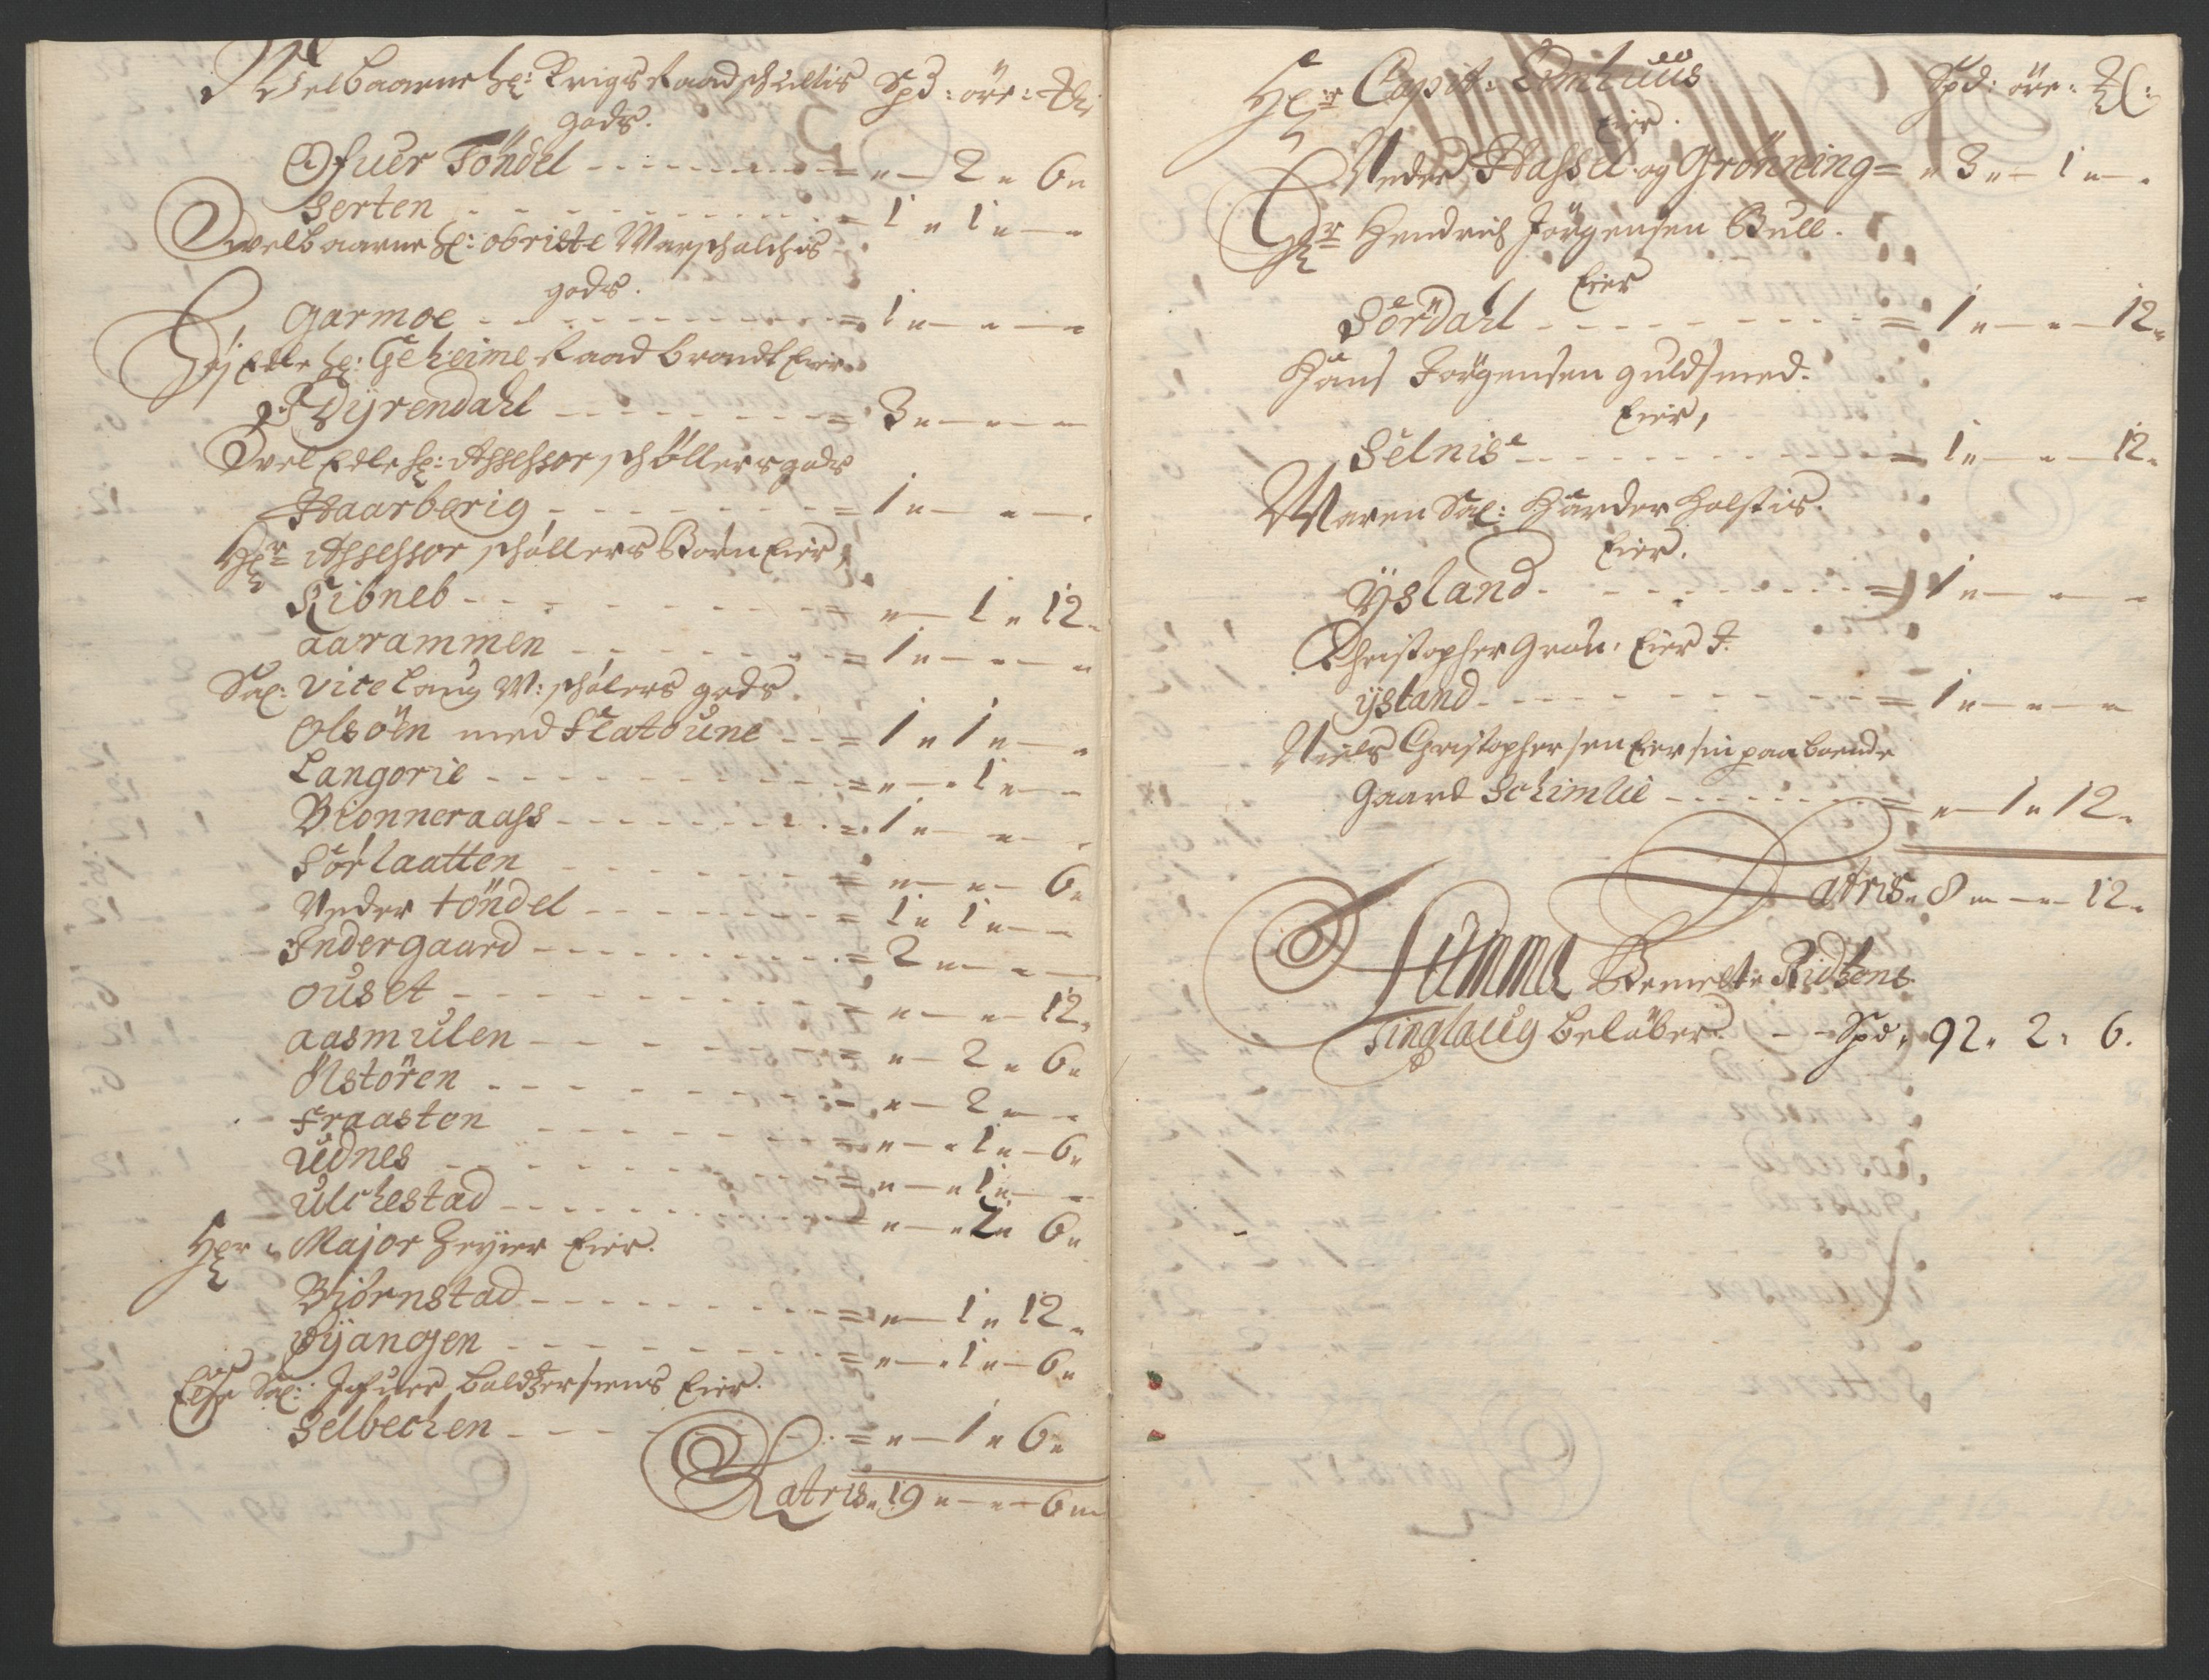 Welbaarne Hr: Krigs Raad Schultis Spd: öre: Ml:
gods.
Ofuer Töndel - - - - - = „ — 2 „ 6 „
Serten - - - - - = 1 „ 1 „ —
welbaarne Hr: obriste Marschalchis
gods.
Garmoe - - - - - = 1 „ — „ —
Höj Edle Hr: Geheime Raad Brandt Eier
Dyrendahl - - - - - = 3 „ — „ —
Wel Edle Hr: Assessor Schöllers gods
Haarberig - - - - - = 1 „ — „ —
Hr Assessor Schöllers Börn Eier,
Ribneb - - - - - = „ — 1 „ 12 „
aarammen - - - - - = 1 „ — „ —
Sal: Vice Laug M: Schölers gods.
Olsöen med Slatoune - - = 1 „ 1 „ —
Langorie - - - - - = „ — 1 „ —
Bionneraass - - - - - = 1 „ — „ —
Sörlaatten - - - - - = „ — „ — 6 „
Neder töndel - - - - - = 1 „ 1 „ —
Indergaard - - - - - = 2 „ — „ —
ouset - - - - - = „ — „ — 12 „
aasmulen - - - - - = „ — 2 „ 6 „
Ølstören - - - - - = „ — 2 „ —
Fraasten - - - - - = „ — 1 „ — 6 „
Udnes - - - - - = „ — 1 „ —
Ulchestad - - - - - = „ — 2 „ 6 „
Hr Major Heyier Eier.
Biörnstad - - - - - = „ — 1 „ 12 „
Øyangen - - - - - = „ — 1 „ — 6 „
Else Sal: Ifuer Baldtzersens Eier.
Selbechen - - - - - = „ — 1 „ 6 „
Latris „ 19 „ — „ — 6 „
Hr Capit: Emhuus Spd: öre: Ml:
Eier.
Neder Hassel og Grönning = „ 3 „ — 1 „ —
Hr Hendrich Jörgensen Bull.
Eier
Sördahl - - - - - = 1 „ — „ — 12 „
Hans Jörgensen guldsmed.
Eier,
Selnis - - - - - = 1 „ — „ — 12 „
Maren Sal: Harder Holstis.
Eier.
Ysland - - - - - = 1 „ — „ —
Christopher Grön: Eier I.
ysland - - - - - = 1 „ — „ —
Niels Christophersen Eier sin paaboende
Gaard Schimlie - - - - - = „ — 1 „ 12 „
Latris „ 8 „ — „ — 12 „
Summa Bemelte
Tinglaug belöber - - Spd „ 92 „ 2 „ 6.